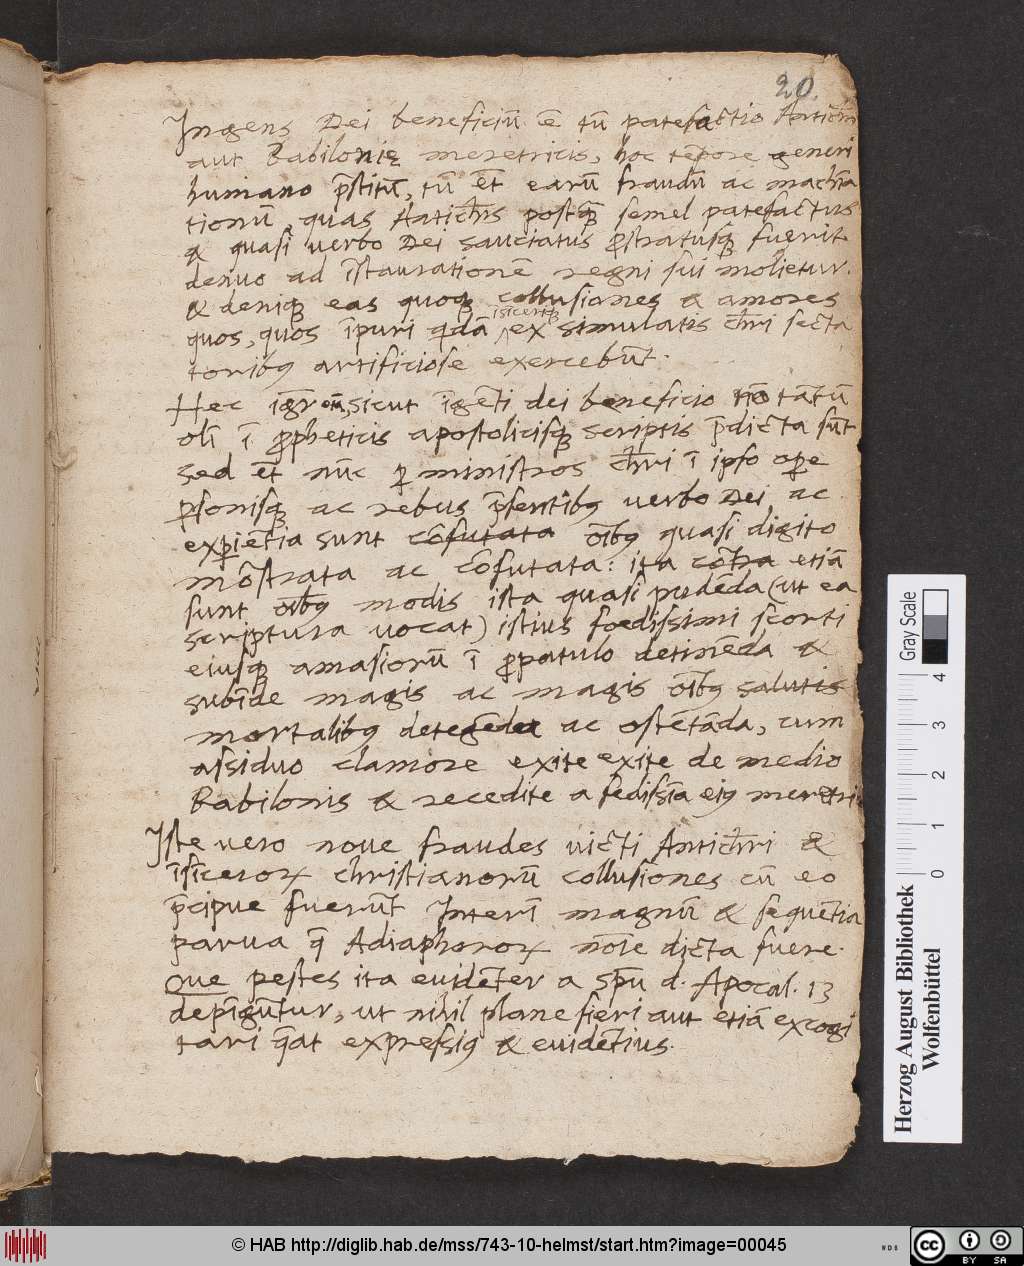 20.
Ingens Dei beneficiū ē tū patefactio Antichri
aut Babilonię meretricis, hoc tēpore generi
humano p̄stitū, tū ēt earū fraudū ac machīa
tionū quas Antichrs postq̄ semel patefactus
& quasi verbo Dei sauctatus ꝓstratusq; fuerit
denuo ad īstaurationē regni sui molietur.
& deniq; eas quoq; collusiones & amores
quos, quos īpuri qdā ex simulatis chri secta
toribꝯ artificiose exercebūt.
Hec sicut īgēti dei beneficio nō tātū
olī ī ꝓpheticis apostolicisq; scriptis p̄dicta sūt
sed ēt nūc ꝑ ministros chri ī ipso oꝑe
ꝑsonisq; ac rebus p̄sentibꝯ verbo Dei ac
exꝑiētia sunt cōfutata oībꝯ quasi digito
mōstrata ac cōfutata: ita cōtra etiā
sunt oībꝯ modis ista quasi pudēda (ut ea
scriptura vocat) istius foedissimi scorti
eiusq; amasiorū ī ꝓpatulo detinēda &
subīde magis ac magis oībꝯ salutis
mortalibꝯ detegēda ac ostētāda, cum
assiduo clamore exite exite de medio
Babilonis & recedite a fedissīa eiꝯ meretri
Iste vero noue fraudes victi Antichri &
īsīceroꝝ christianorū collusiones cū eo
p̄cipue fuerūt Interī magnū & sequētia
parua q̄ Adiaphoroꝝ nōīe dicta fuere.
Que pestes ita euidēter a spu d. Apocal. 13
depīgūtur, ut nihil plane fieri aut etiā excogi
tari q̄at expressiꝯ & euidētius.
Herzog August Bibliothek
Wolfenbüttel
Gray Scale
0 1 2 3 4
© HAB http://diglib.hab.de/mss/743-10-helmst/start.htm?image=00045
cc BY SA